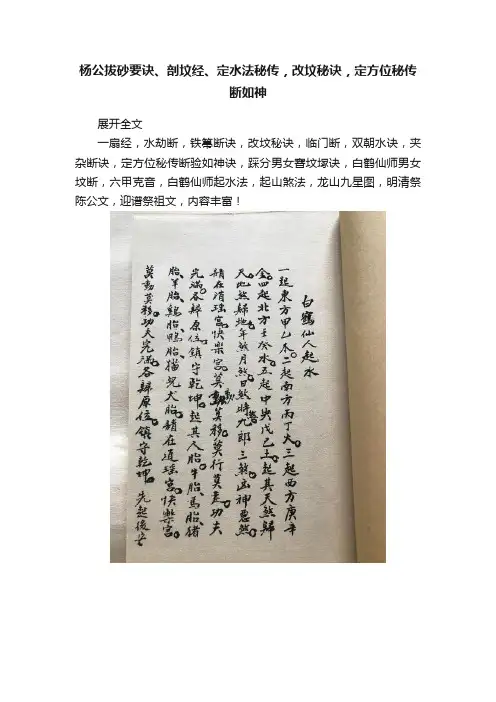 杨公拔砂要诀、剖坟经、定水法秘传，改坟秘诀，定方位秘传
断如神
展开全文
一扇经，水劫断，铁篝断诀，改坟秘诀，临门断，双朝水诀，夹
杂断诀，定方位秘传断验如神诀，踩分男女窨坟塚诀，白鹤仙师男女
坟断，六甲克音，白鹤仙师起水法，起山煞法，龙山九星图，明清祭
陈公文，迎谱祭祖文，内容丰富！
白鶴仙人起水
一起東方甲乙木。二起南方丙丁火。三起西方庚辛
金。四起北方壬癸水。五起中央戊己土。起其天煞歸
天。地煞歸地。年煞月煞。日煞時煞。九郎三煞。凶神惡煞。
藏在消瑤宮。快樂宮。莫動莫移。莫行莫走。功夫
完滿。各歸原位。鎮守乾坤。起其人胎。牛胎。馬胎。猪
胎。羊胎。鷄胎。鴨胎。猫兒犬胎。藏在逍瑤宮。快樂宮。
莫動莫移。功夫完滿。各歸原位。鎮守乾坤。先起後安